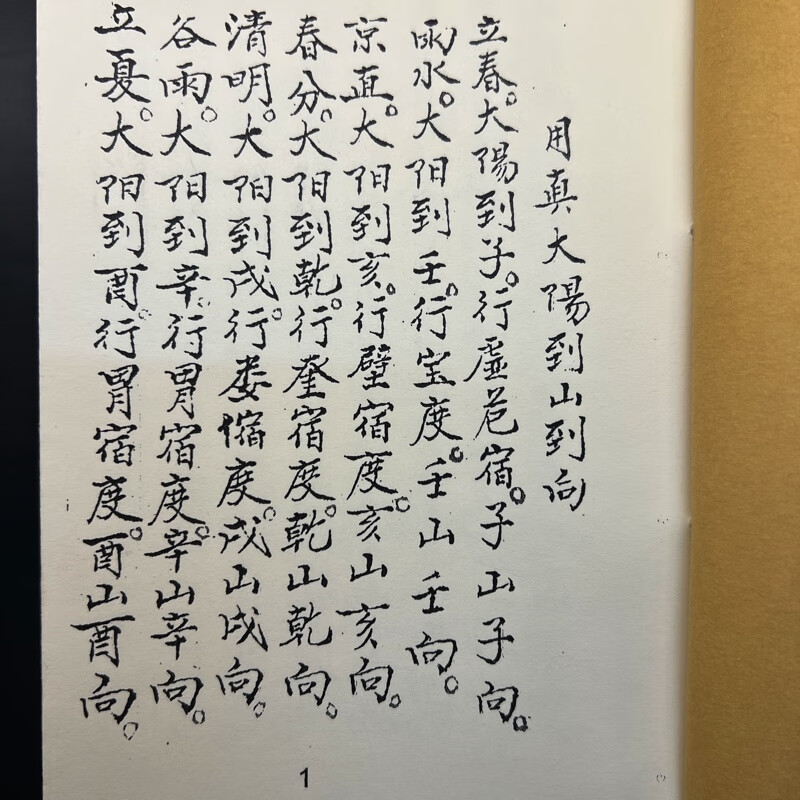 用真大陽到山到向
立春。大陽到子。行虚危宿。子山子向。
雨水。大阳到壬。行宝度。壬山壬向。
京直。大阳到亥。行壁宿度。亥山亥向。
春分。大阳到乾。行奎宿度。乾山乾向。
清明。大阳到戌。行娄宿度。戌山戌向。
谷雨。大阳到辛。行胃宿度。辛山辛向。
立夏。大阳到酉。行胃宿度。酉山酉向。
1